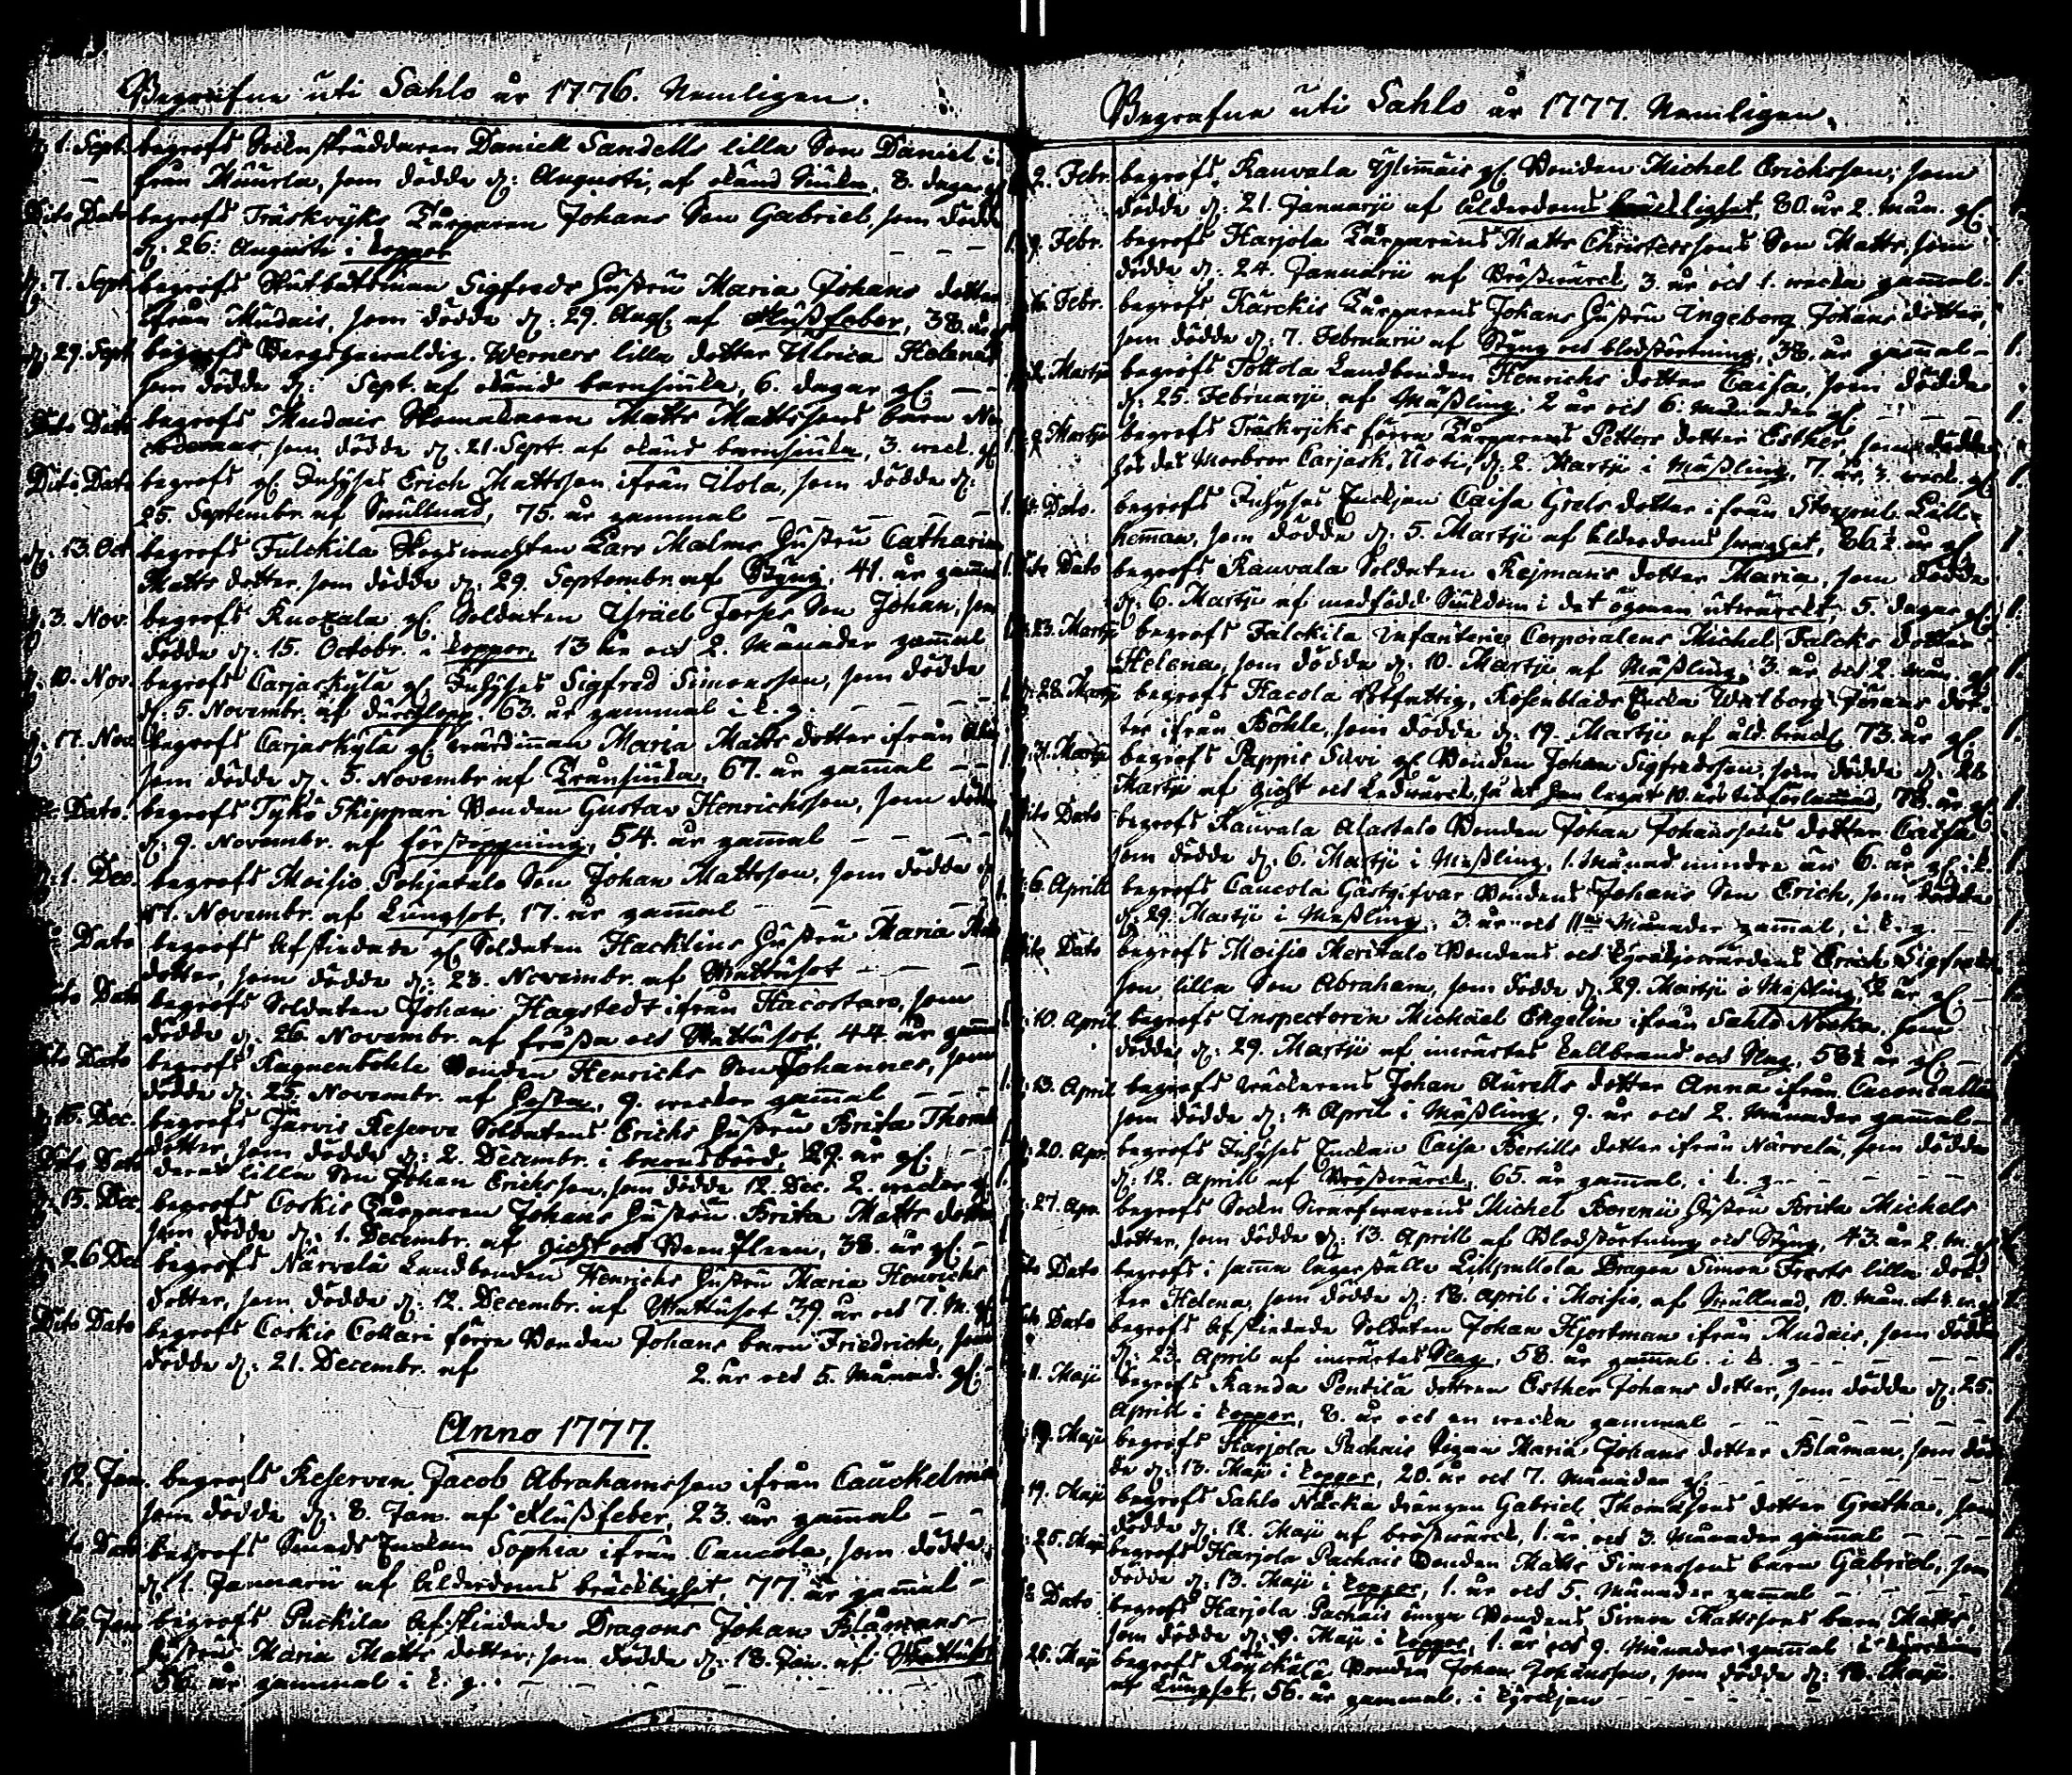 Begrafne uti Sahlo år 1776. Nemligen.
d. 1. Sept. begrofs Sockn skräddaren Daniel Sandells lilla Son Daniel i
från Muurla, som dödde d: Augusti, af okänd Siuka, 8. dagar gl.
Dito Dato begrofs Träskvijks Torparen Johans Son Gabriel, som dödde
d: 26: Augusti i koppor
d: 7. Sept. begrofs Sigfreds hustru Maria Johans dotter
ifrån Mudais, som dödde d: 29. Aug. af flußfeber, 38. år
d: 29. Sept. begrofs Werners lilla dotter Ulrica Helena
som dödde d: Sept. af okänd barnsiuka, 6. dagar gl.
Dito Dato begrofs Mudais Skomakaren Matts Mattssons barn
som dödde d: 21. Sept. af okänd barnsiuka, 3. weck. gl.
Dito Dato begrofs gl. Inhyses Erich Mattsson ifrån Ilola, som dödde d:
25. Septembr. af Swullnad, 75. år gammal
d: 13. Oct. begrofs Fulckila Lars Malms hustru Catharina
Matts dotter, som dödde d: 29. Septembr. af Styng, 41. år gammal
d: 3. Nov. begrofs gl. Soldaten Israel Son Johan, som
dödde d: 15. Octobr. i koppor, 13 år och 2. Månader gammal
d: 10. Nov. begrofs Carjaskylä gl. Inhyses Sigfred Simonsson, som dödde
d: 5. Novembr. af durchlopp. 63. år gammal i k. g.
d: 17. Nov. begrofs Carjaskylä gl. Maria Matts dotter ifrån
som dödde d: 5. Novembr. af Tränsiuka, 67. år gammal
Dato. begrofs Tykö Skippari Bonden Gustav Henrichsson, som dödde
d: 9. Novembr. af förstoppning, 54. år gammal
d: 1. Dec. begrofs Moisio Pohjatalo Son Johan Mattsson, som dödde d.
11. Novembr. af Lungsot, 17. år gammal
Dato begrofs Afskedade gl. Soldaten Hacklins hustru Maria
dotter, som dödde d: 23. Novembr. af Wattusot
Dito Dato begrofs Soldaten Johan Hagstedt ifrån Hacostaro, som
dödde d: 26. Novembr. af frossa och Wattusot, 44. år gammal
Dito Dato begrofs Bonden Henrichs Son Johannes, som
dödde d: 25. Novembr. af hosta, 9. weckor gammal
d: 15. Dec. begrofs Järvis Reserve Soldatens Erichs hustru Brita Thomas
dotter, som dödde d: 2. Decembr. i barnsbörd 29. år gl.
Dito Dato deras lilla Son Johan Erichsson, som dödde 12. Dec. 2. weckor g.
d. 15. Dec. begrofs Corkis Torparen Johans hustru Brita Matts dotter
som dödde d: 1. Decembr. af gicht och 38. år gl.
d. 26 Dec begrofs Närvelä Landbonden Henrichs hustru Maria Henrichs
dotter, som dödde d: 12. Decembr. af Wattusot 39. år och 7. M. gl.
Dito Dato begrofs Corkis Cottari förra Bonden Johans barn Friedrich, som
dödde d: 21. Decembr. af 2. år och 5. Månad. gl.
Anno 1777.
12. Jan. begrofs Reserven Jacob Abrahamsson ifrån Cauckelma
som dödde d: 8. Jan. af flußfeber, 23. år gammal
Dato begrofs Smeds Enckan Sophia ifrån Caucola, som dödde
d. 1. Januarii af ålderdoms bräcklighet, 77. år gammal
26. Jan begrofs Puckila Afskedade Dragons Johan Blåmans
hustru Maria Matts dotter, som dödde d: 18. Jan. af Wattusot
56. år gammal i k. g.
Begrafne uti Sahlo år 1777. Nemligen.
2. Febr. begrofs Kauvala gl. Bonden Michel Erichsson, som
dödde d: 21. Januarii af ålderdoms bräcklighet, 80. år 2. mån. gl.
9. Febr. begrofs Harjola Torparens Matts Christerssons Son Matts, som
dödde d: 24. Januarii af Bröstwärck, 3. år och 1. wecka gammal.
16. Febr. begrofs Kärckis Torparens Johans hustru Ingeborg Johans dotter,
som dödde d: 7. Februarii af Styng och blodstörtning, 38. år gammal
2. Martii begrofs Tottola Landbonden Henrichs dotter Caisa, som dödde
d: 25. Februarii, af Mäßling, 2 år och 6. månader gl.
9. Martii begrofs Träskvijks förra Torparens Petters dotter Esther, som dödde
hos des Morbror Carjask. Uoti, d: 2. Martii i Mäßling, 7. år, 3. weck. gl.
Dato. begrofs Inhyses Enckjan Caisa Grels dotter ifrån
hemman, som dödde d: 5. Martii af ålderdoms swaghet, 86½ år gl.
Dito Dato begrofs Kauvala Soldaten Rejmans dotter Maria, som dödde
d: 6. Martii af medfödd Siukdom i det ögonen utwärckt, 5. dagar gl.
23. Martii begrofs Falckila Infanterie Corporalens Michel Falcks dotter
Helena, som dödde d: 10. Martii af Mäßling, 3. år och 2. mån. gl.
28. Martii begrofs Hacola Utfattig, Rosenblads Encka Walborg Jörans dot-
ter ifrån Böhle, som dödde d: 19. Martii af åld. bräck. 73. år gl.
31. Martii begrofs Pappis Suvi gl. Bonden Johan Sigfredsson, som dödde d: 26
Martii af gicht och Ledwärck, så at han legat 10. års tid förlammad, 78. år gl.
Dito Dato begrofs Kauvala Alastalo Bonden Johan Johanssons dotter Caisa
som dödde d: 6. Martii i Mäßling, 1. Månad mindre än 6. år gl. i k.
6. Aprill begrofs Caucola Gästgifvar Bondens Johans Son Erich, som dödde
d: 29. Martii i Mäßling, 3. år och 11 Månader gammal, i k. g.
Dito Dato begrofs Moisio Meritalo Bondens och Kyrckjowärdens Erich Sigfreds
son lilla Son Abraham, som dödde d: 29. Martii i Mäßling, 2 år gl.
10. April begrofs Inspectoren Michael Engelin ifrån Sahlo Näcka, som
dödde d: 29. Martii af inwärtes kallbrand och Slag, 58½ år gl.
13. April begrofs Johan Aurells dotter Anna ifrån
som dödde d: 4. April i Mäßling, 9. år och 2. Månader gammal
20. Apr. begrofs Inhyses Enckan Caisa Bertills dotter ifrån Närvelä, som dödde
d: 12. April af Bröstwärck, 65. år gammal, i k. g.
27. Apr. begrofs Sockn Michel hustru Brita Michels
dotter, som dödde d: 13. Aprill af Blodstörtning och Styng, 43. år 2. m. gl.
Dito Dato begrofs i samma lägerställe Dragon Simon Frosts lilla dot-
ter Helena, som dödde d: 18. April i Moisio, af Swullnad, 10. Mån.
Dito Dato begrofs Afskedade Soldaten Johan Hjortman ifrån Mudais, som dödde
d: 23. April af inwärtes Slag, 58. år gammal i k. g.
11. Maji begrofs Kanda Pentilä dottren Esther Johans dotter, som dödde d: 25.
Aprill i koppor, 8. år och en wecka gammal
19. Maji begrofs Harjola Pachais Pigan Maria Johans dotter Blåman, som död
de d: 13. Maji i koppor, 20. år och 7. Månader gl.
19. Maji begrofs Sahlo Näcka drängen Gabriel Thomassons dotter Gretha, som
dödde d: 12. Maji af bröstwärck, 1. år och 3. Månader gammal
25. Maji begrofs Harjola Pachais Bonden Matts Simonssons barn Gabriel, som
dödde d: 13. Maji i koppor, 1. år och 5. Månader gammal
Dato begrofs Harjola Pachais Bondens Simon Mattssons barn Matts,
som dödde d: 9. Maji i koppor, 1. år och 9. Månader gammal
25. Maji begrofs Bonden Johan Johansson, som dödde d: 18. Maji
af Lungsot, 56. år gammal, i kyrckjan